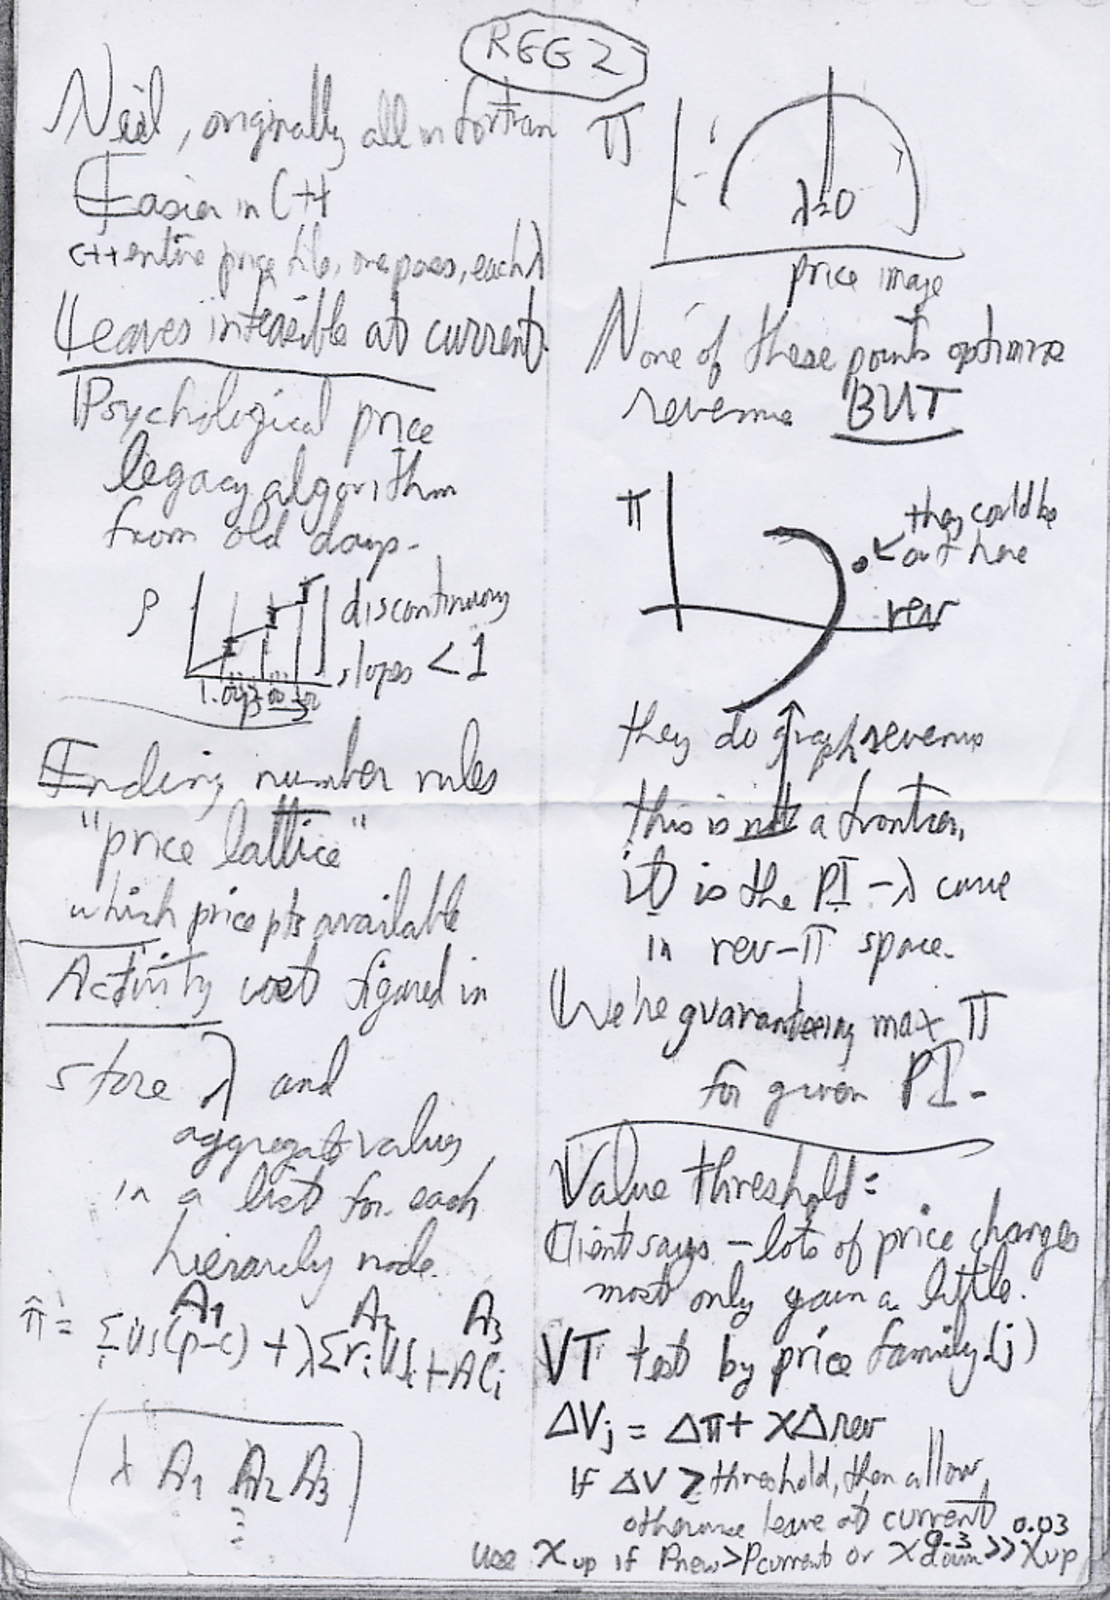 REG 2
Neil, originally all in Fortran
Easier in C++
C++ entire price file, one pass, each λ
Leaves infeasible at current.
Psychological price
legacy algorithm
from old days.
ρ
discontinuous
slopes < 1
Ending number rules
"price lattice"
which price pts available
Activity cost figured in
store λ and
aggregate values
in a list for each
hierarchy node.
A1 A2 A3
π̂ = ΣUS(p-c) + λΣriUSi + ACi
λ A1 A2 A3
π
λ=0
price image
None of these points optimize
revenue BUT
π
they could be
out here
rev
they do graph revenue
this is not a frontier,
it is the PI-λ curve
in rev-π space.
We're guaranteeing max π
for given PI.
Value threshold:
Client says - lots of price changes
most only gain a little.
VT test by price family (j)
ΔVj = Δπ + xΔrev
If ΔV ≥ threshold, then allow,
otherwise leave at current
0.3 0.03
use Xup if Pnew>Pcurrent or xdown >> Xup